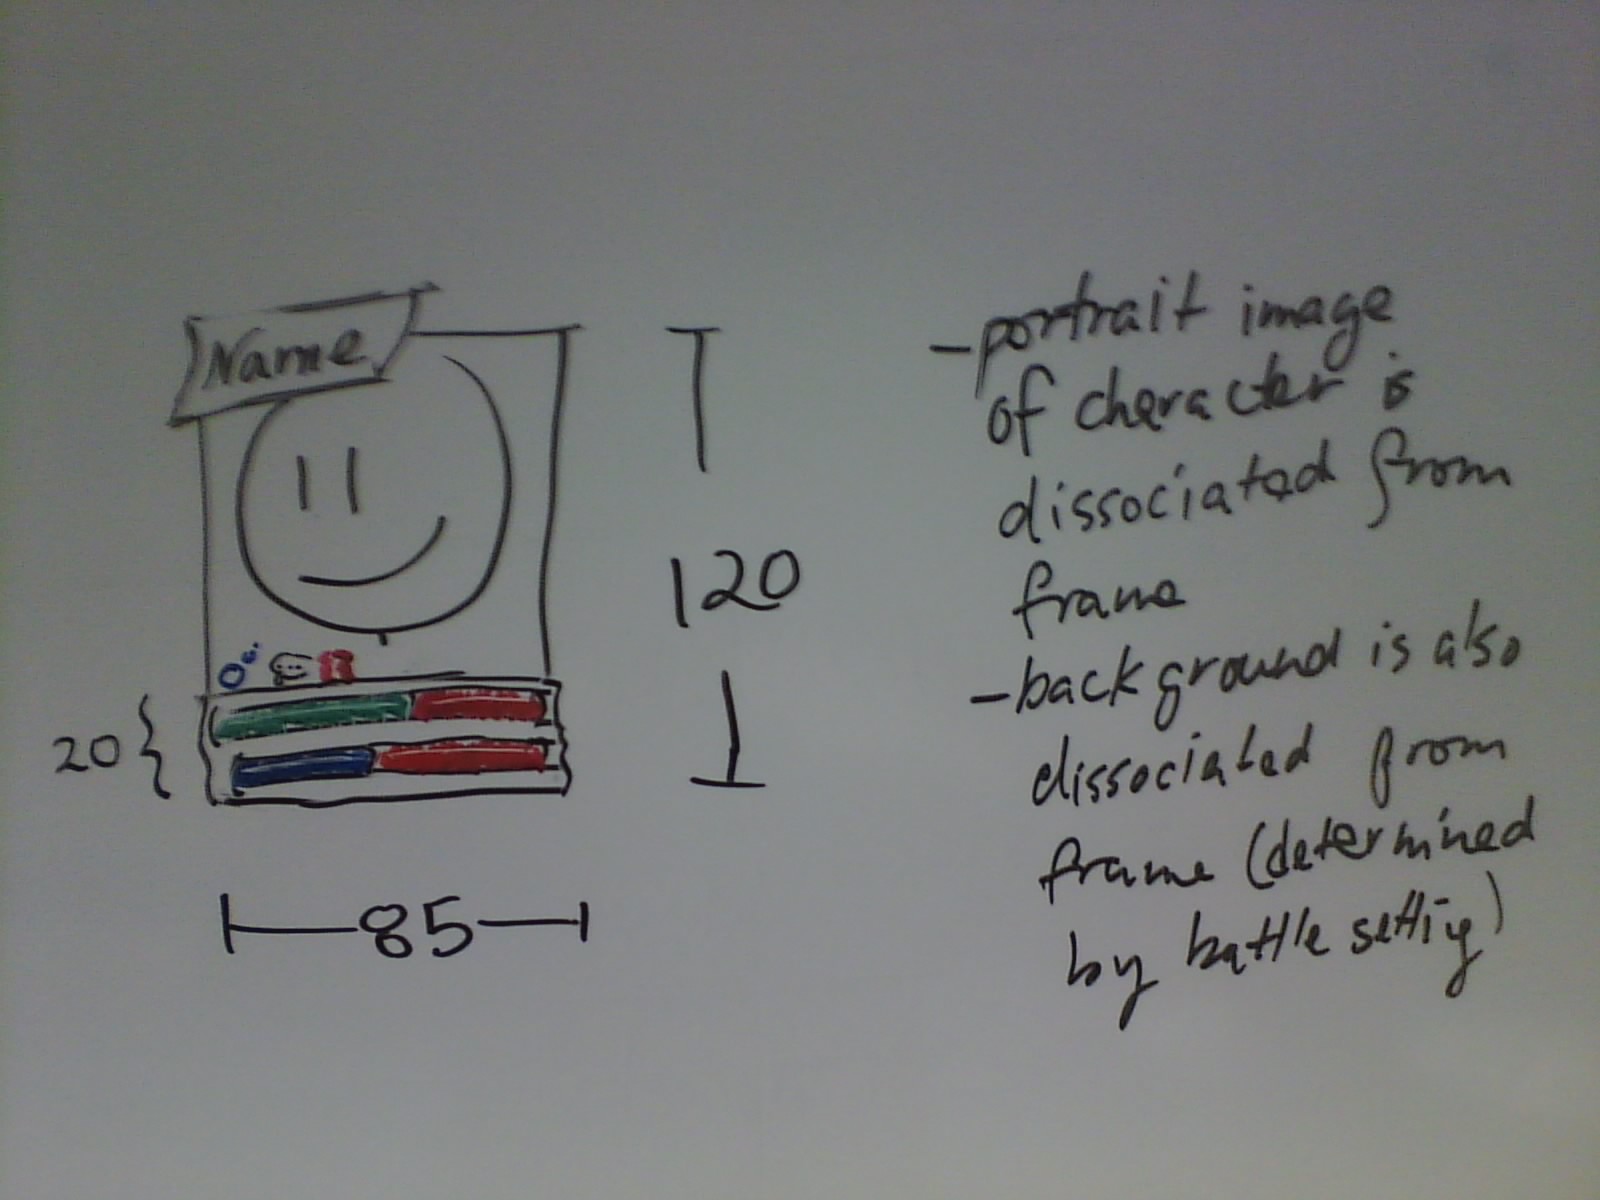 Name
120
20
85
-portrait image
of character is
dissociated from
frame
-background is also
dissociated from
frame (determined
by battle setting)